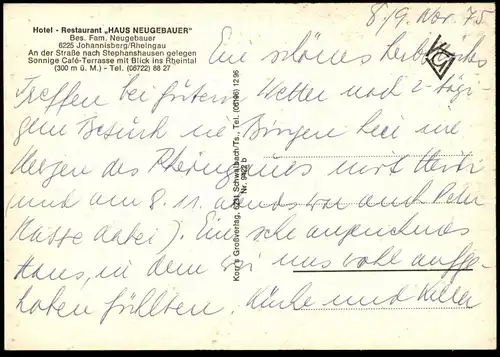 Hotel - Restaurant „HAUS NEUGEBAUER"
Bes. Fam. Neugebauer
6225 Johannisberg/Rheingau
An der Straße nach Stephanshausen gelegen
Sonnige Café-Terrasse mit Blick ins Rheintal
(300 m ü. M.) - Tel. (06722) 88 27
8./9. Nov. 75
Ein schönes
Treffen bei gutem Wetter und 2-tägi-
gem Besuch in Bingen bei
Herzen des Rheingaues mit
(und am 8. 11. abends war auch
dabei). Ein sehr angenehmes
Haus, in dem wir uns wohl aufge-
hoben fühlten. Küche und Keller
Korr's Großverlag, 6231 Schwalbach/Ts., Tel. (06196) 12 96
Nr. 9422 b